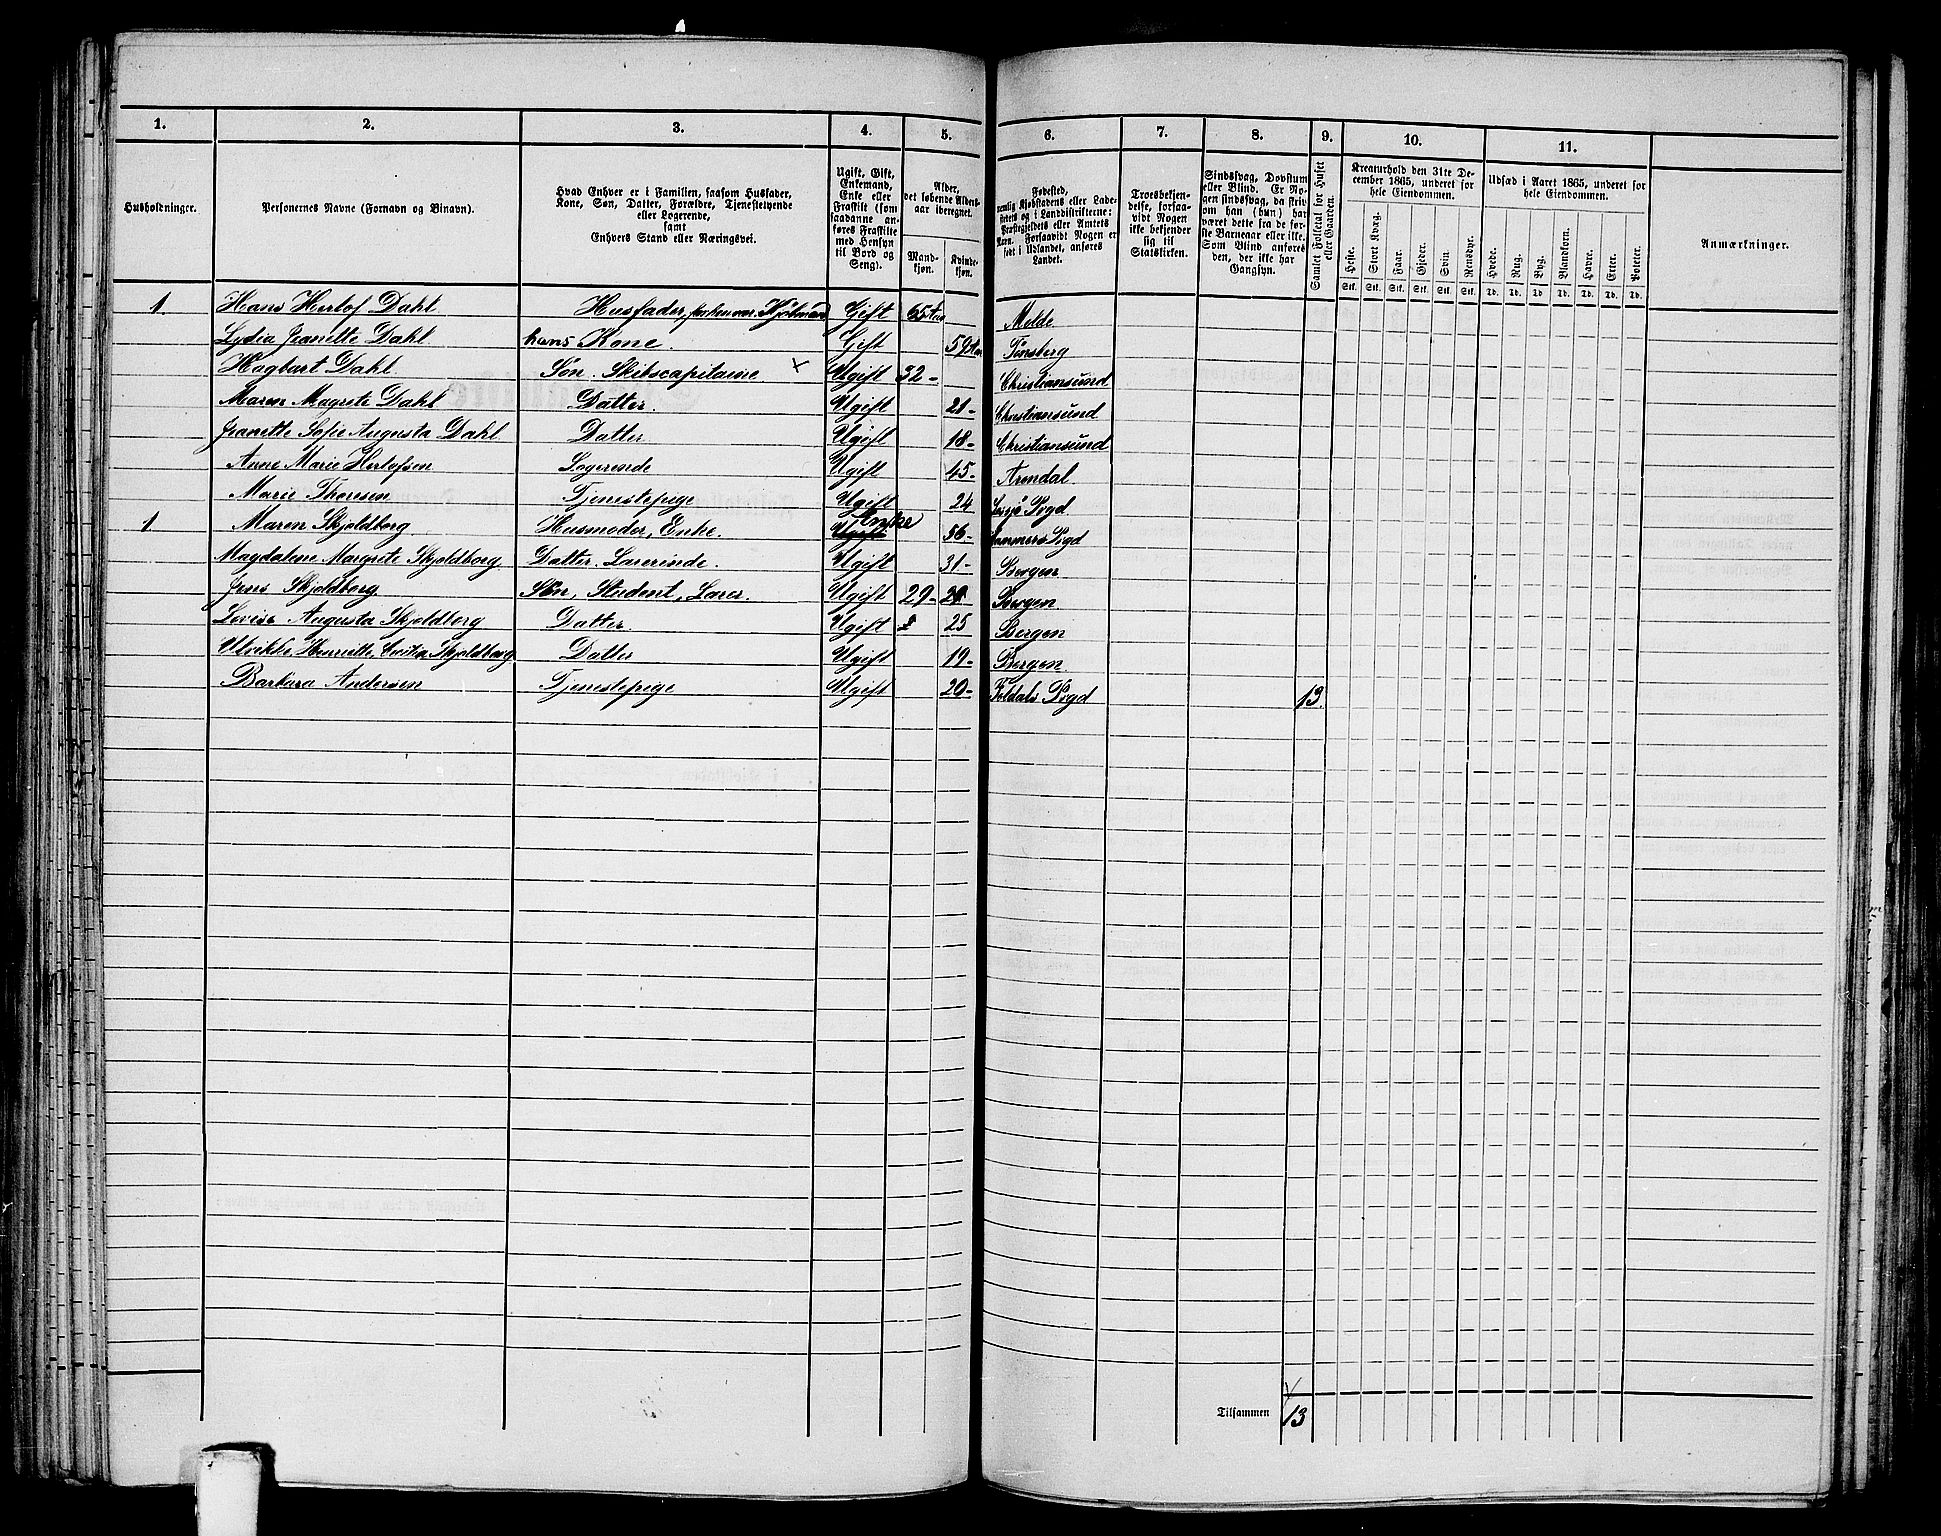 1. 2. 3. 4. 5. 6. 7. 8. 9. 10. 11.
Husholdninger.
Personernes Navne (Fornavn og Binavn).
Hvad Enhver er i Familien, saasom Husfader,
Kone, Søn, Datter, Forældre, Tjenestetyende
eller Logerende,
samt
Enhvers Stand eller Næringsvei.
Ugift, Gift,
Enkemand,
Enke eller
Fraskilt (som
saadanne an-
føres Fraskilte
med Hensyn
til Bord og
Seng).
Alder,
det løbende Alders-
aar iberegnet.
Mand-
kjøn.
Kvinde-
kjøn.
Fødested,
nemlig Kjøbstadens eller Lade-
stedets og i Landdistrikterne:
Præstegjeldets eller Amtets
Navn. Forsaavidt Nogen er
født i Udlandet, anføres
Landet.
Troesbekjen-
delse, forsaa-
vidt Nogen
ikke bekjender
sig til
Statskirken.
Sindssvag, Døvstum
eller Blind. Er No-
gen sindssvag, da skriv
om han (hun) har
været dette fra de før-
ste Barneaar eller ikke.
Som Blind anføres
den, der ikke har
Gangsyn.
Samlet Folketal for Huset
eller Gaarden.
Kreaturhold den 31te De-
cember 1865, underet for
hele Eiendommen.
Heste. Stort Kvæg. Faar. Gjeder. Svin. Rensdyr.
Stk. Stk. Stk. Stk. Stk. Stk.
Udsæd i Aaret 1865, underet for
hele Eiendommen.
Hvede. Rug. Byg. Blandkorn. Havre. Erter. Poteter.
Td. Td. Td. Td. Td. Td. Td.
Anmærkninger.
1 Hans Herlof Dahl Husfader, forhenvær. Kjøbmand Gift 65 Aar Molde
Lydia Jeanette Dahl hans Kone. Gift 59 Aar Tønsberg
Hagbart Dahl. Søn. Skibscapitaine × Ugift 32- Christiansund
Maren Magrete Dahl Datter. Ugift 21- Christiansund
Jeanette Sofie Augusta Dahl Datter. Ugift 18- Christiansund
Anne Marie Herlofsen Logerende Ugift 45- Arendal
Marie Thoresen Tjenestepige Ugift 24 Pgd
1 Maren Skjoldborg Husmoder, Enke. Enke 56- Pgd
Magdalene Margrete Skjoldborg Datter. Lærerinde. Ugift 31- Bergen
Jens Skjoldborg Søn, Student, Lærer. Ugift 29- Bergen
Lovise Augusta Skjoldborg Datter. Ugift 25 Bergen
Ulrikke Henriette Skjoldborg Datter Ugift 19- Bergen
Barbara Andersen Tjenestepige Ugift 20- Pgd 13.
Tilsammen 13